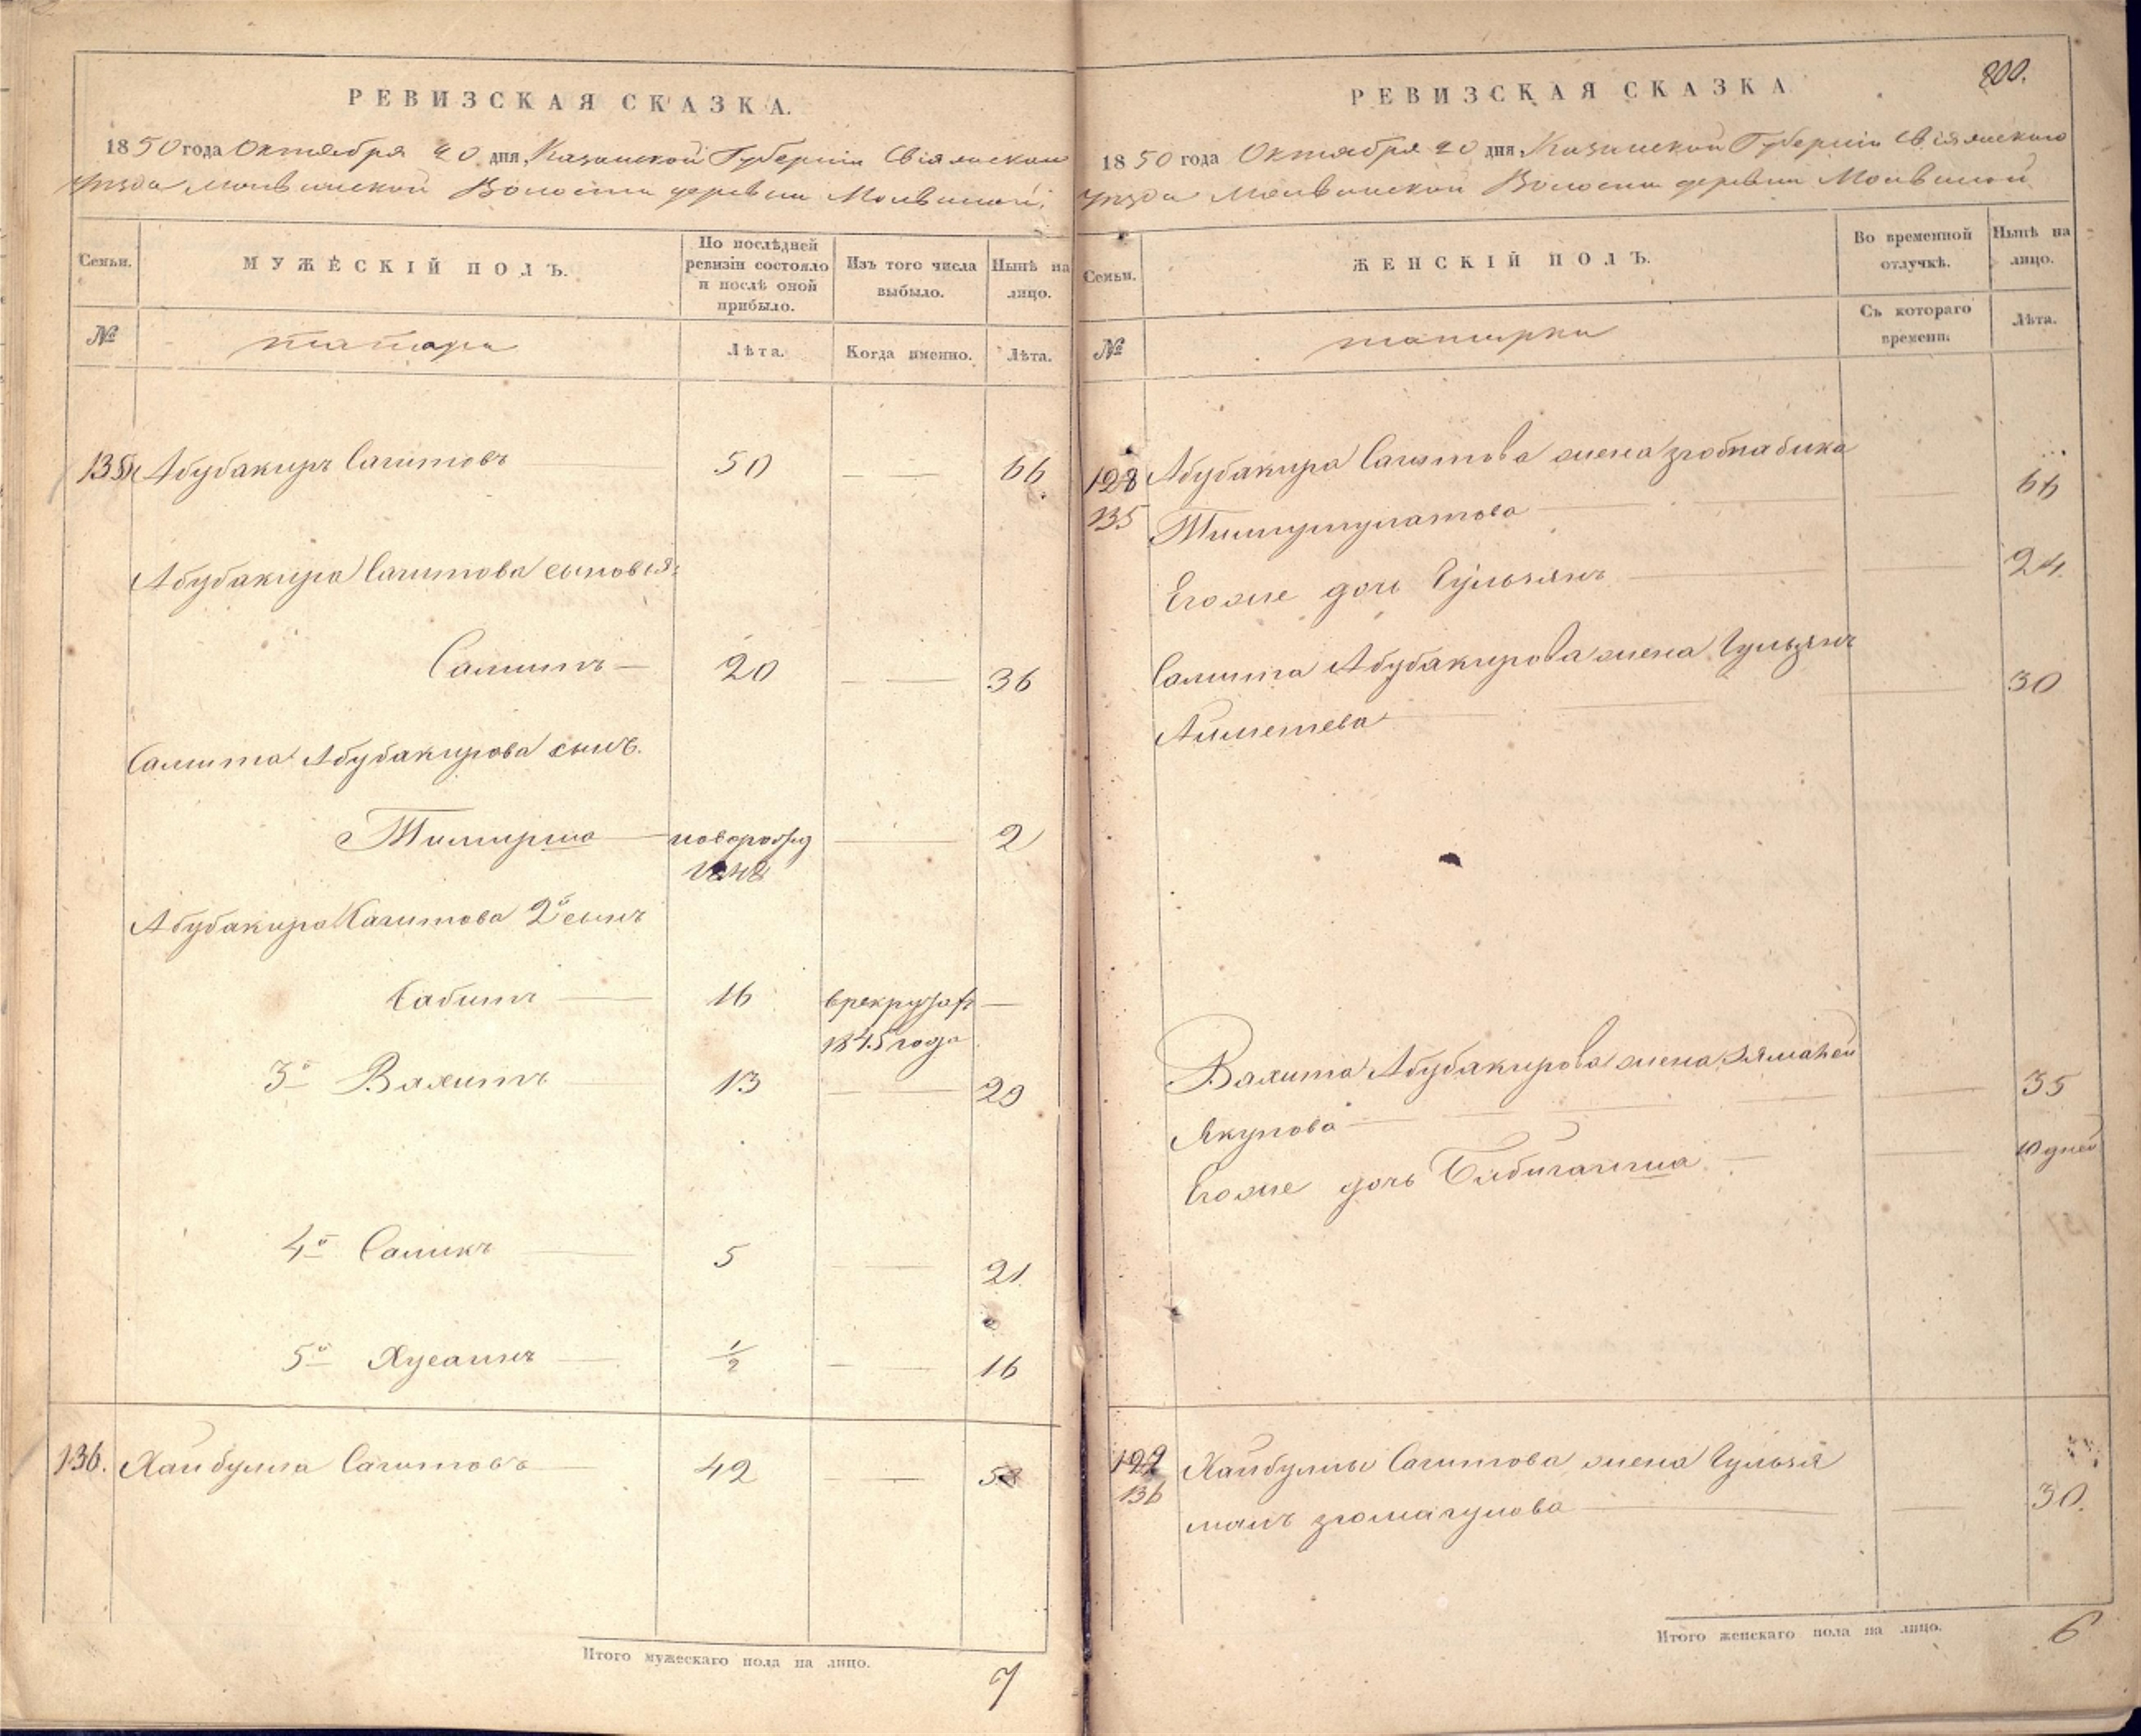 РЕВИЗСКАЯ СКАЗКА.
1850 года Октября 20 дня, Казанской Губерніи Свіяжскаго
Уѣзда Молвинской Волости деревни Молвиной.
Семьи.
МУЖЕСКІЙ ПОЛЪ.
По послѣдней ревизіи состояло и послѣ оной прибыло.
Изъ того числа выбыло.
Нынѣ на лицо.
№
татары
Лѣта.
Когда именно.
Лѣта.
135 Абубакиръ Сагитовъ 50 — — 66
Абубакира Сагитова сыновья:
Самитъ — 20 — — 36
Самита Абубакирова сынъ.
Тимирша — новорожд — — 2
генъ
Абубакира Сагитова 2й сынъ
Сабитъ — 16 врекрутахъ —
1845 года
3й Вахитъ — 13 — — 29
4й Саликъ — 5 — — 21
5й Хусаинъ — 1/2 — — 16
136. Хайбулла Сагитовъ — 42 — — 58
Итого мужескаго пола на лицо.
7
800.
РЕВИЗСКАЯ СКАЗКА
1850 года Октября 20 дня, Казанской Губерніи Свіяжскаго
Уѣзда Молвинской Волости деревни Молвиной
Семьи.
ЖЕНСКІЙ ПОЛЪ.
Во временной отлучкѣ.
Нынѣ на лицо.
№
татарки
Съ котораго времени.
Лѣта.
128 Абубакира Сагитова жена
135 — — 66
Егоже дочь Гульзянъ — — 24.
Самита Абубакирова жена Гульзянъ
— — 30
Вахита Абубакирова жена
Якупова — — 35
Егоже дочь Бибигайша — — 10 дней
129 Хайбуллы Сагитова жена Гульзя
136 малъ — — 30.
Итого женскаго пола на лицо.
6